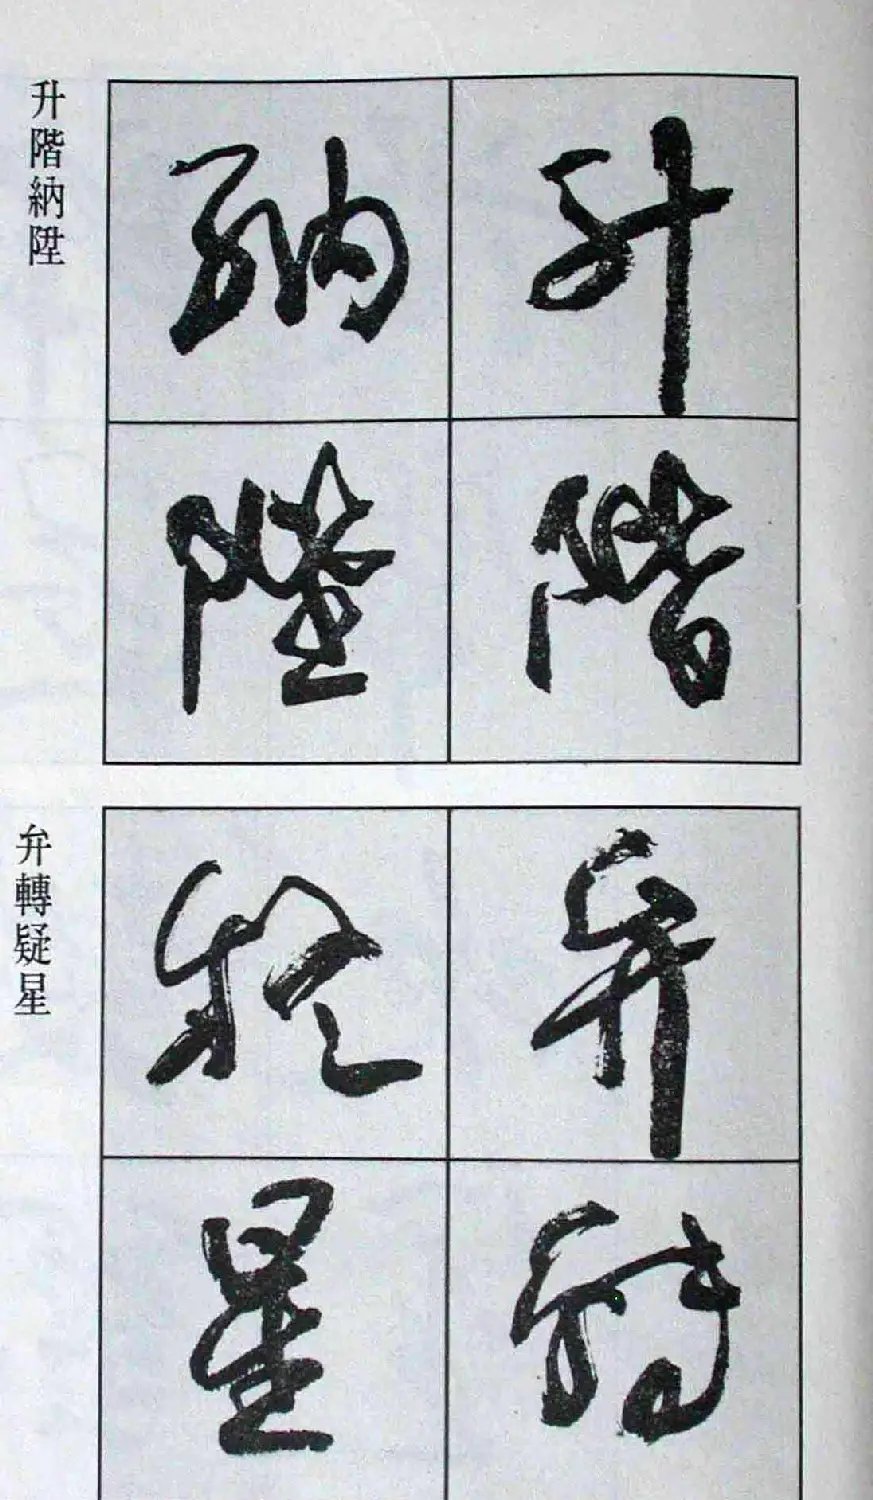 升階
納陞
升階納陞
弁轉
疑星
弁轉疑星